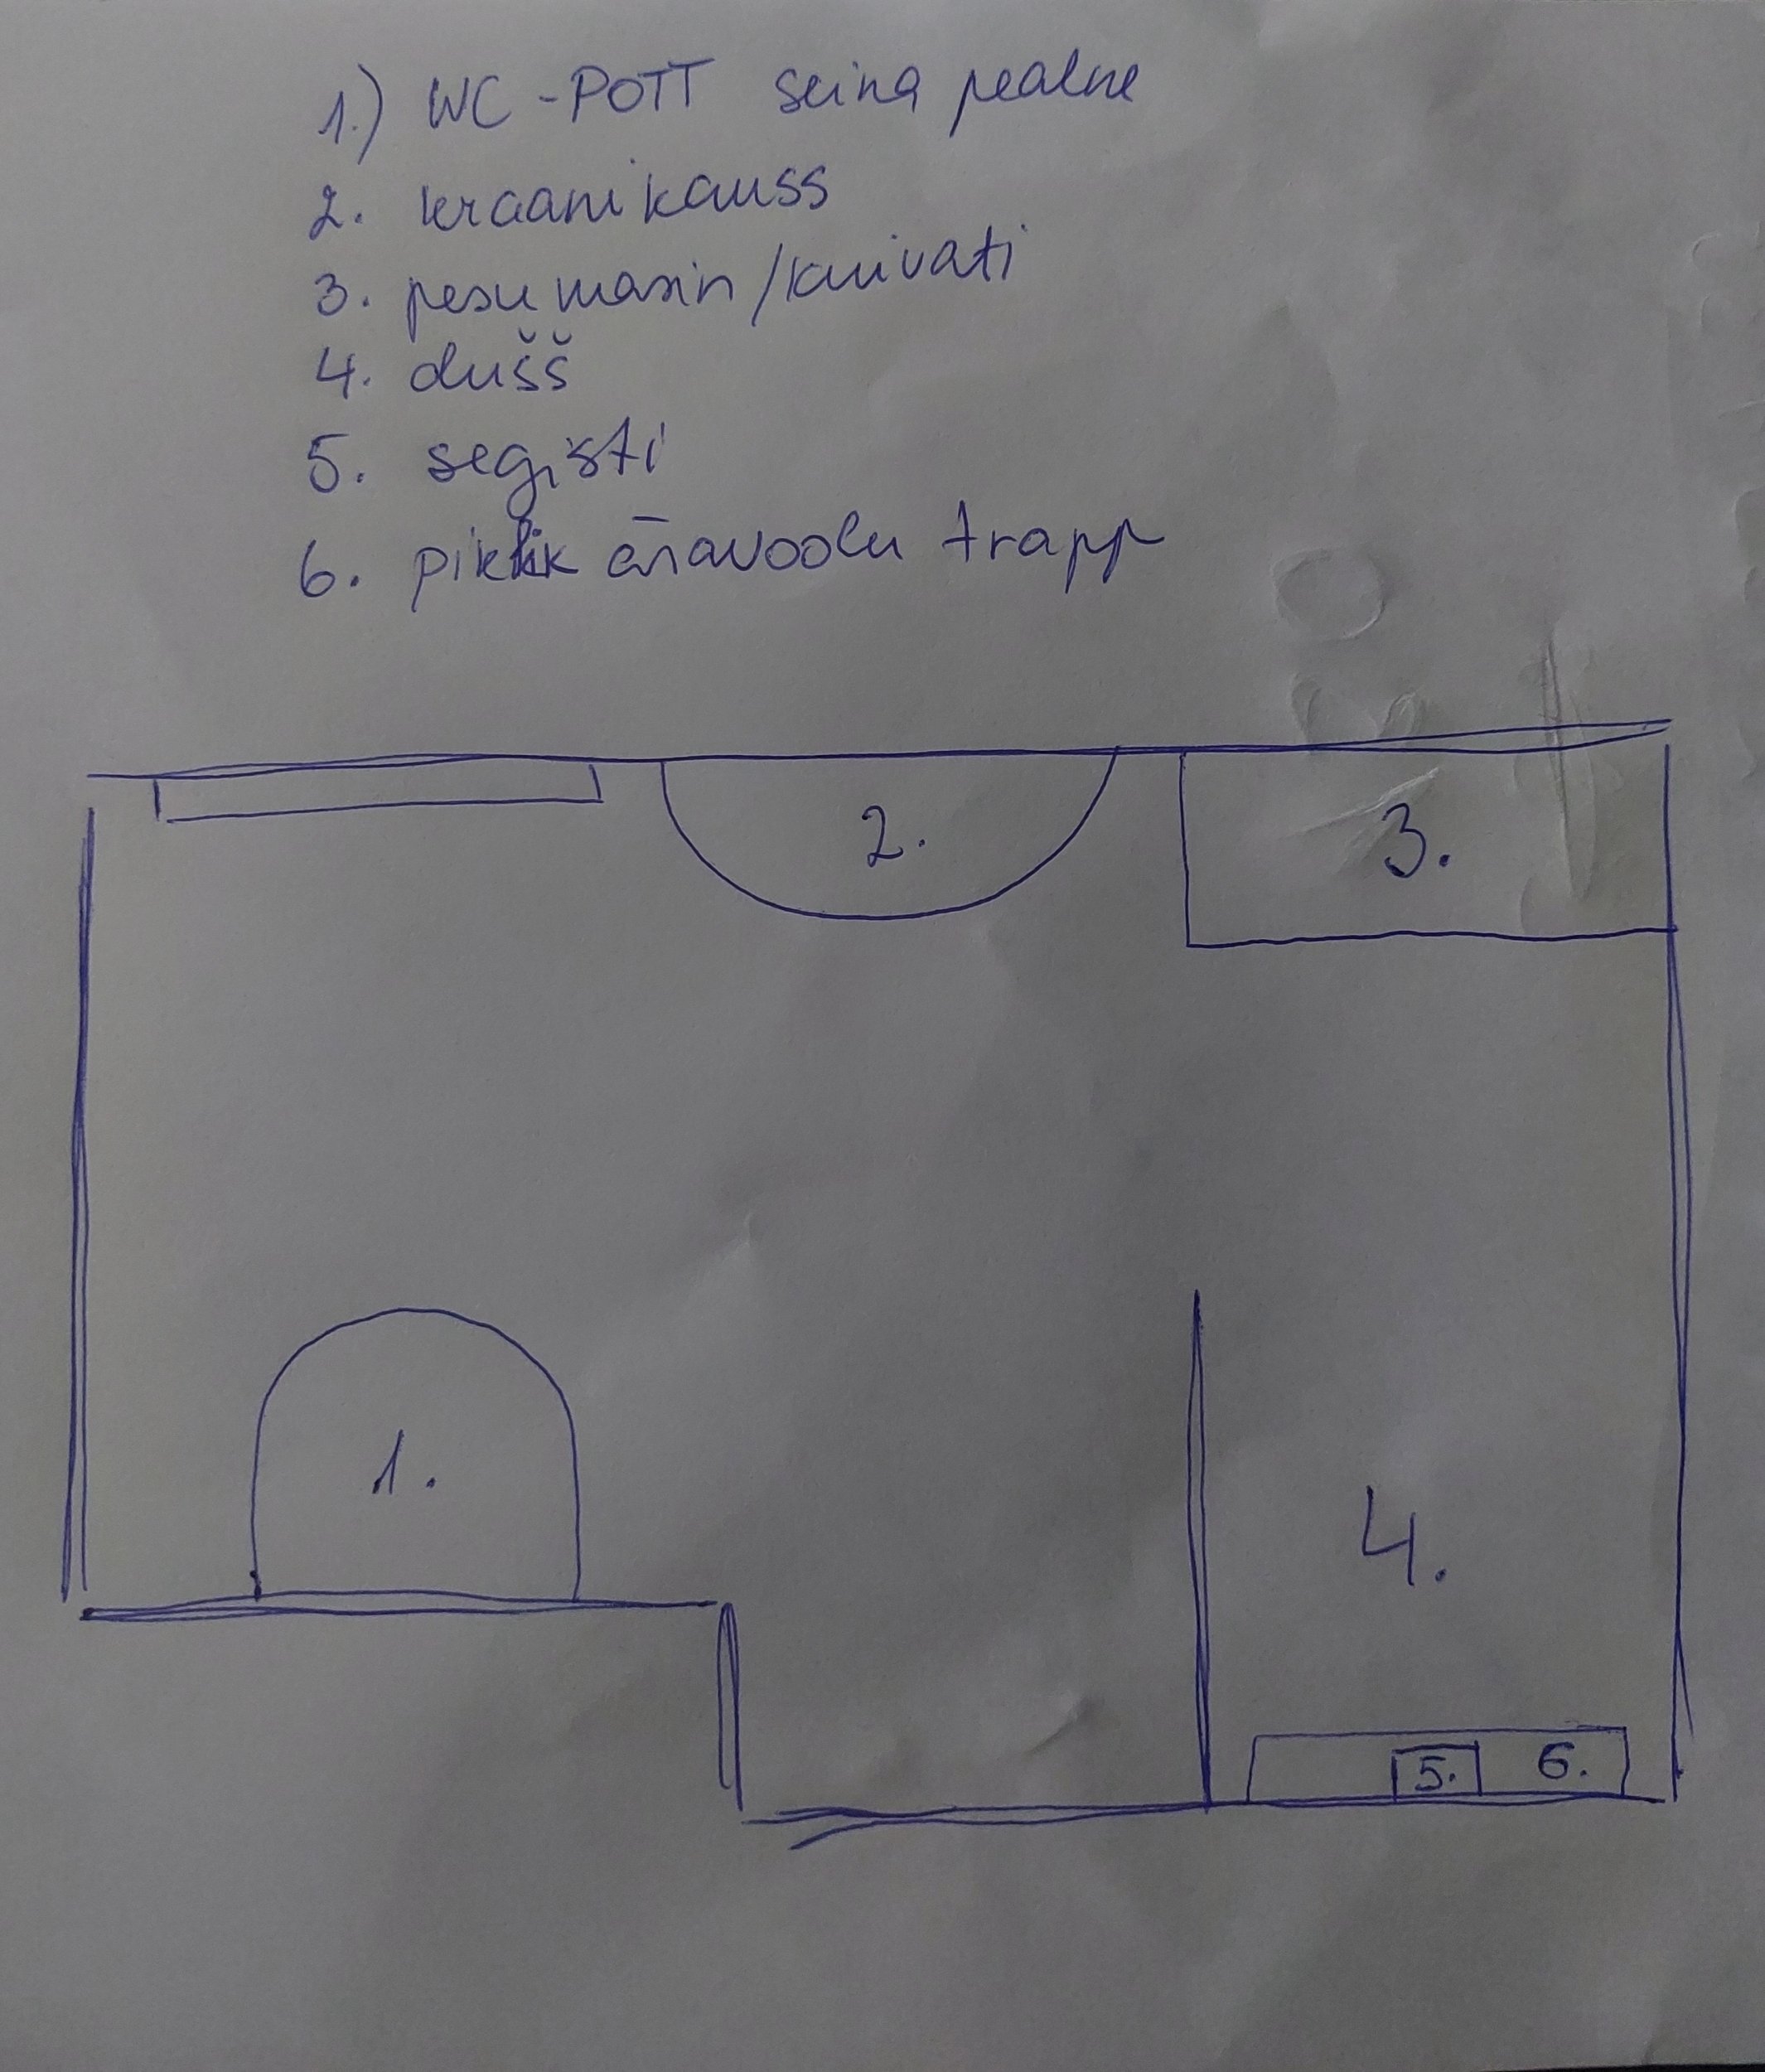 1.) WC-POTT seina pealne
2. kraanikauss
3. pesumasin/kuivati
4. dušš
5. segisti
6. piklik äravoolu trapp
2.
3.
1.
4.
5.
6.